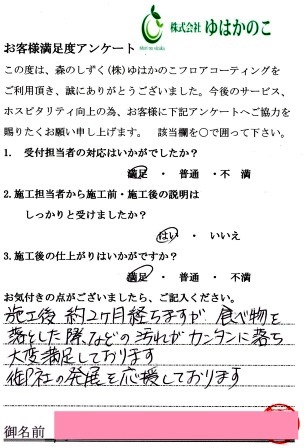 株式会社 ゆはかのこ
お客様満足度アンケート
この度は、森のしずく(株)ゆはかのこフロアコーティングを
ご利用頂き、誠にありがとうございました。今後のサービス、
ホスピタリティ向上の為、お客様に下記アンケートへご協力を
賜りたくお願い申し上げます。 該当欄を○で囲って下さい。
1. 受付担当者の対応はいかがでしたか?
満足 ・ 普通 ・不 満
2.施工担当者から施工前・施工後の説明は
しっかりと受けましたか?
はい ・ いいえ
3.施工後の仕上がりはいかがですか?
満足 ・ 普通 ・ 不 満
お気付きの点がございましたら、ご記入ください。
施工後 約2ヶ月経ちますが 食べ物を
落とした際、などの汚れがカンタンに落ち
大変満足しております
御社の発展を応援しております
御名前